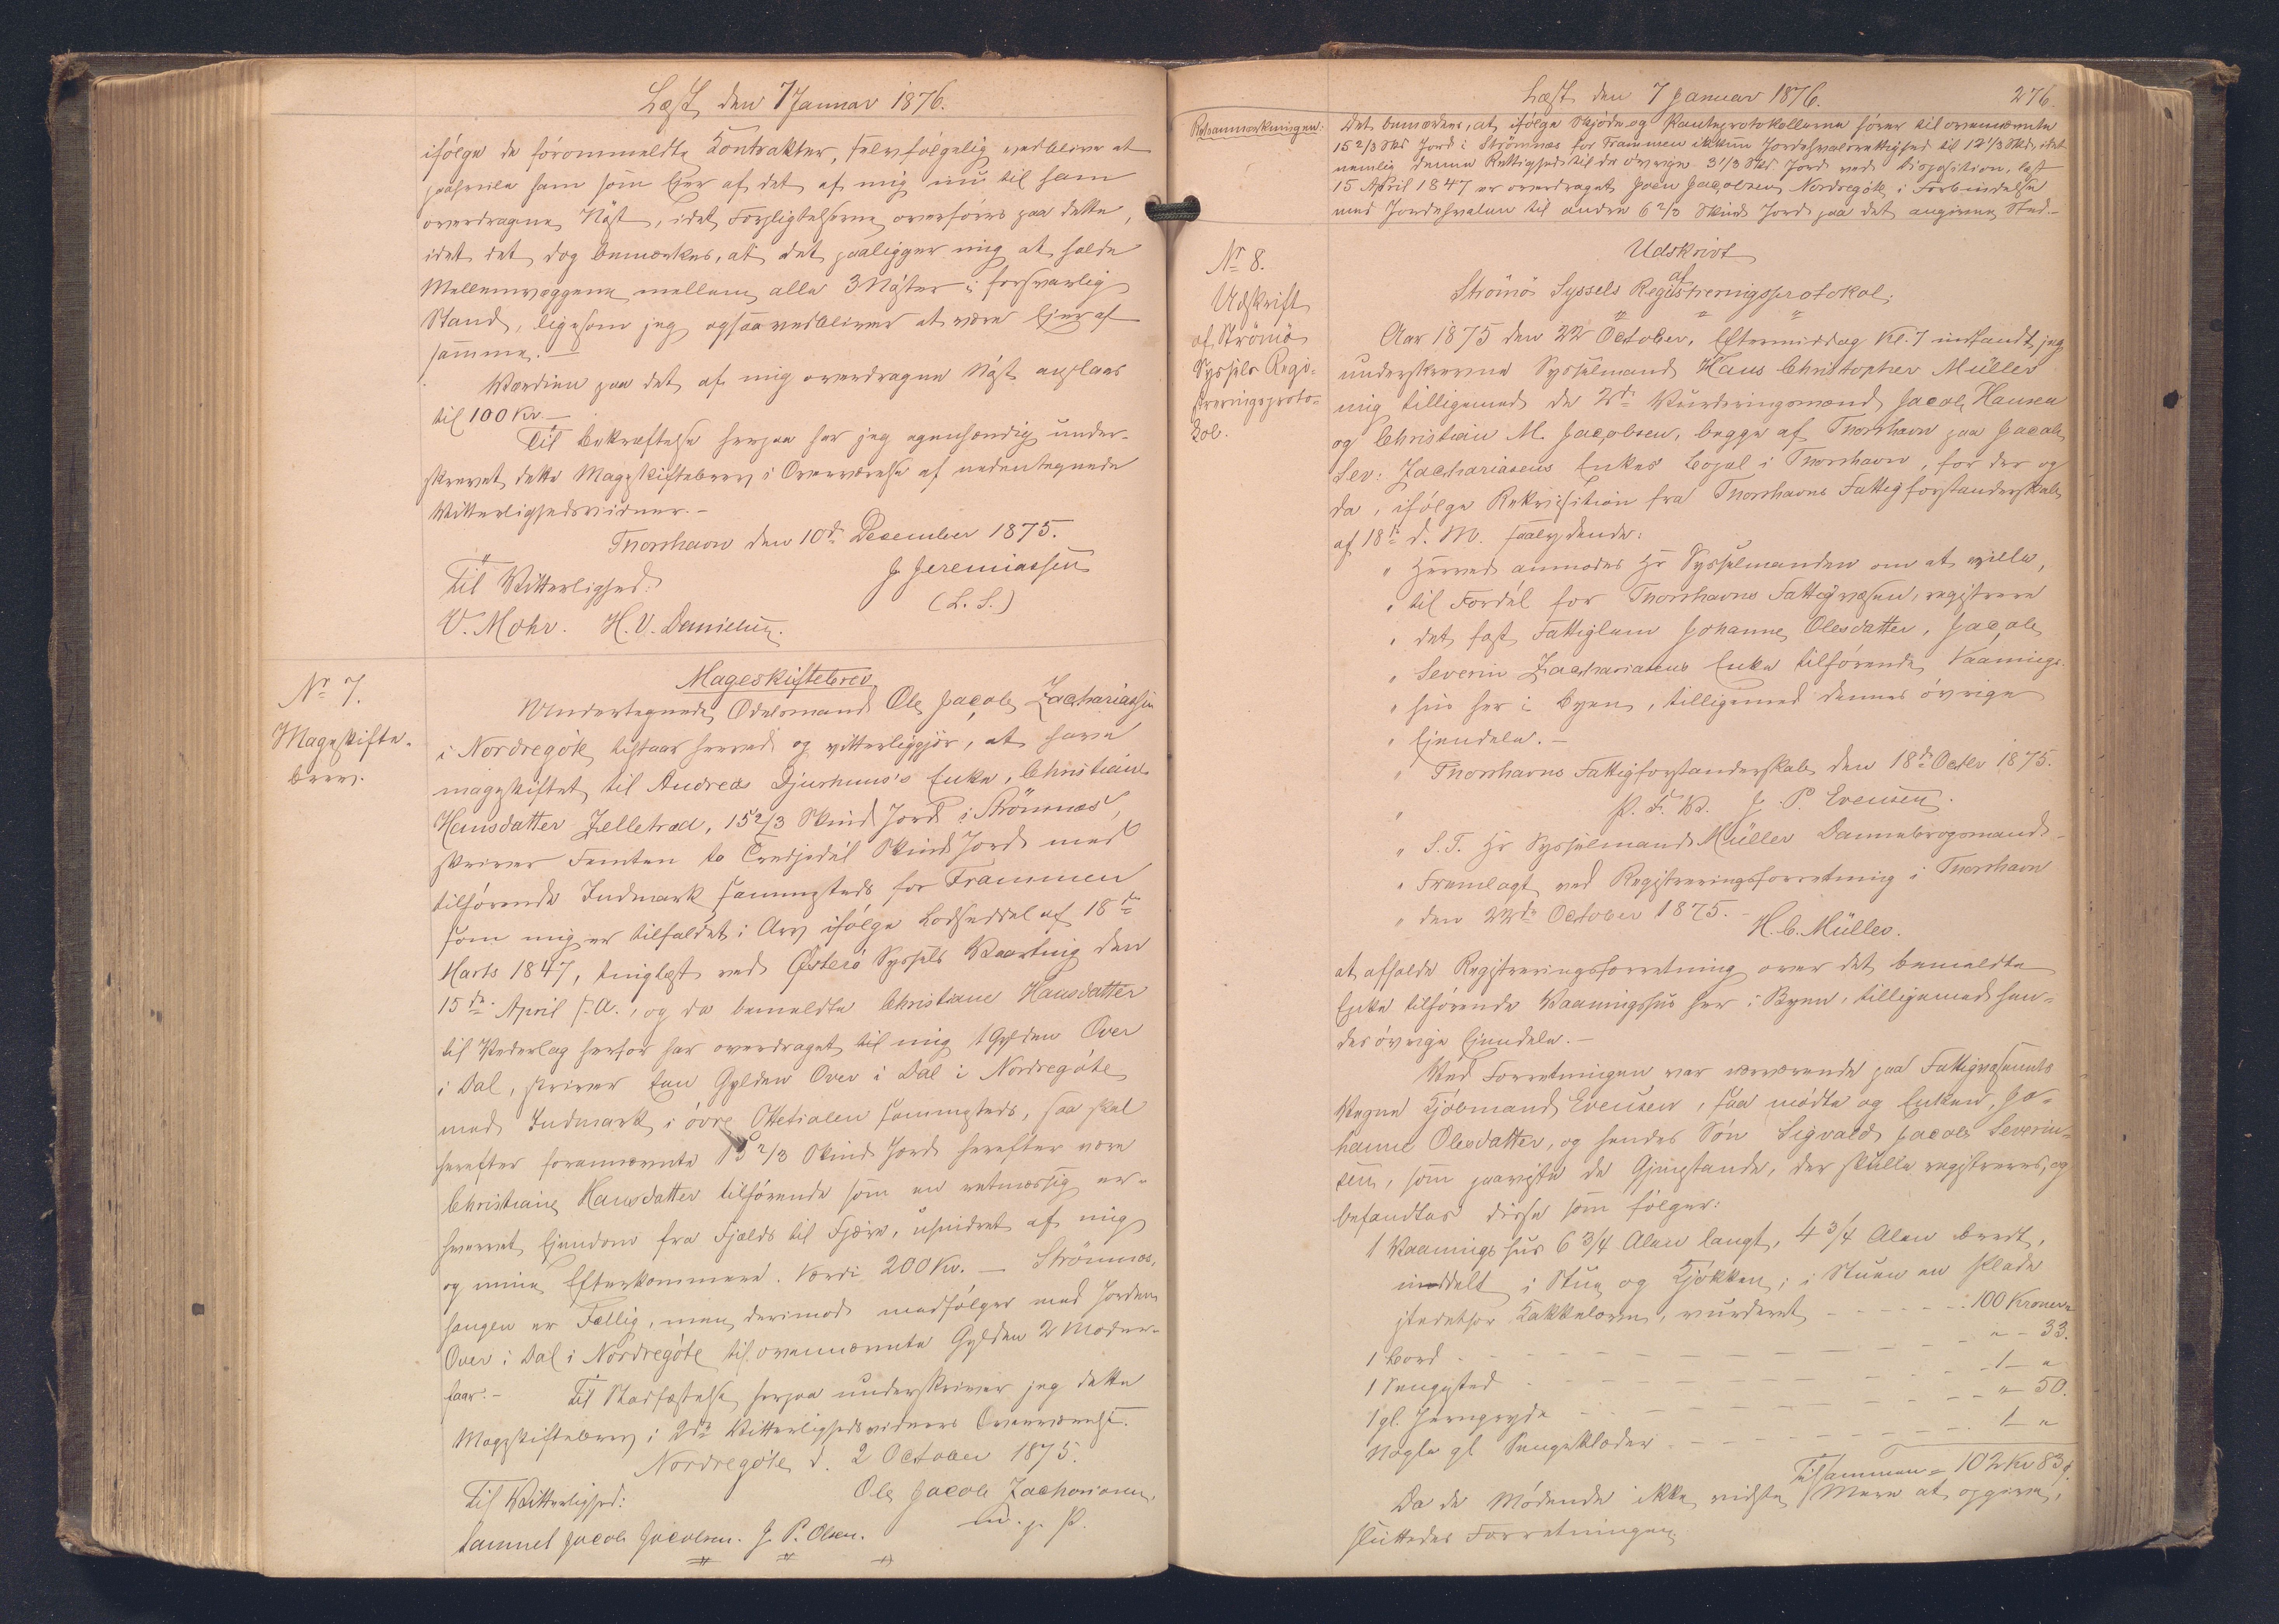 Læst den 7 Januar 1876.
ifølge de førommeldte Kontrakter, selvfølgelig vedbliver at
paahvile ham som Ejer af det af mig nu til ham
overdragne Nøst, idet Forpligtelserne overføres paa dette,
idet det dog bemærkes, at det paaligger mig at holde
Mellemvæggene mellem alle 3 Nøster i forsvarlig
Stand, ligesom jeg ogsaa vedbliver at være Ejer af
samme.—
Værdien paa det af mig overdragne Nøst anslaaes
til 100 Kr.—
Til Bekræftelse herpaa har jeg egenhændig under-
skrevet dette Mageskiftebrev i Overværelse af nedentegnede
Vitterlighedsvidner.—
Thorshavn den 10de December 1875.
J. Jeremiassen
Til Vitterlighed:
(L. S.)
V. Mohr. H. V. Danielsen.
No 7.
Mageskifte-
brev.
Mageskiftebrev
Undertegnede Odelsmand Ole Jacob Zachariassen
i Nordregöte tilstaar herved og vitterliggjør, at have
mageskiftet til Andreas Djurhuus's Enke, Christiane
Hansdatter Zelletræd, 15 2/3 Skind Jord i Strömnæs,
skriver Femten to Tredjedel Skind Jord med
tilhørende Indmark sammesteds, for Frammen
som mig er tilfaldet i Arv ifølge Lodseddel af 18de
Marts 1847, tinglæst ved Østerö Syssels Vaarting den
15de April s. A., og da bemeldte Christiane Hansdatter
til Vederlag herfor har overdraget til mig 1 Gylden Over
i Dal, skriver Een Gylden Over i Dal i Nordregöte
med Indmark i øvre Ottetialen sammesteds, saa skal
herefter forannævnte 15 2/3 Skind Jord herefter være
Christiane Hansdatter tilhørende som en retmæssig er-
hvervet Ejendom fra Fjælds til Fjære, uhindret af mig
og mine Efterkommere. Værdi 200 Kr. — Strömnæs-
haugen er Fællig, men derimod medfølger med Jorden
Over i Dal i Nordregöte til ovennævnte Gylden 2 Moder-
faar.— Til Stadfæstelse herpaa underskriver jeg dette
Mageskiftebrev i 2de Vitterlighedsvidners Overværelse.
Nordregöte d. 2 October 1875.
Til Vitterlighed: Ole Jacob Zachariasen
Samuel Jacob Jacobsen. J. P. Olsen. m. p. P.
Læst den 7 Januar 1876. 276.
Retsanmærkningen:
Det bemærkes, at ifølge Skjøde- og Panteprotokollerne hører til ovennævnte
15 2/3 Skd Jord i Strömnæs for Frammen ikkun Jordehvalsrettighed til 12 1/3 Skd, idet
nemlig denne Rettighed til de øvrige 3 1/3 Skd Jord ved Disposition, læst
15 April 1847 er overdraget Joen Jacobsen, Nordregöte i Forbindelse
med Jordehvalen til andre 6 2/3 Skind Jord paa det angivne Sted.—
No 8.
Udskrift
af Strömö
Syssels Regi-
streringsproto-
kol.
Udskrivt
af
Strömö Syssels Registreringsprotokol.
Aar 1875 den 22 October, Eftermiddag Kl. 7 indfandt jeg
underskrevne Sysselmand Hans Christopher Müller
mig tilligemed de 2de Vurderingsmænd Jacob Hansen
og Christian M. Jacobsen, begge af Thorshavn paa Jacob
Sev: Zachariasens Enkes Bopæl i Thorshavn, for der og
da, ifølge Rekvisition fra Thorshavns Fattigforstanderskab
af 18de d. M. saalydende:
" Herved anmodes Hr Sysselmanden om at ville,
" til Fordel for Thorshavns Fattigvæsen, registrere
" det fast Fattiglem Johanne Olesdatter, Jacob
" Severin Zachariasens Enke tilhørende Vaanings-
" hus her i Byen, tilligemed dennes øvrige
" Ejendele.—
" Thorshavns Fattigforstanderskab den 18de Octbr 1875.
" P. F. V. J. P. Evensen.
" S. T. Hr Sysselmand Müller Dannebrogsmand
" Fremlagt ved Registreringsforretning i Thorshavn
" den 22de October 1875.—
H. C. Müller.
at afholde Registreringsforretning over det bemeldte
Enke tilhørende Vaaningshus her i Byen, tilligemed hen-
des øvrige Ejendele.—
Ved Forretningen var nærværende paa Fattigvæsenets
Vegne Kjøbmand Evensen, saa mødte og Enken, Jo-
hanne Olesdatter, og hendes Søn Sigvald Jacob Severin-
sen, som paaviste de Gjenstande, der skulle registreres, og
befandtes disse som følger:
1 Vaaningshus 6 3/4 Alen langt, 4 3/4 Alen bredt,
inddelt i Stue og Kjøkken; i Stuen en Plade
istedetfor Kakkelovn, vurderet - - - - - 100 Kroner "
1 Bord - - - - - - - - - " - 33.
1 Sengested - - - - - - - - 1 - "
1 gl. Jerngryde - - - - - - - " - 50.
Nogle gl. Sengeklæder - - - - - - 1 - "
Tilsammen = 102 Kr 83 ø.
Da de Mødende ikke vidste Mere at opgive,
sluttedes Forretningen